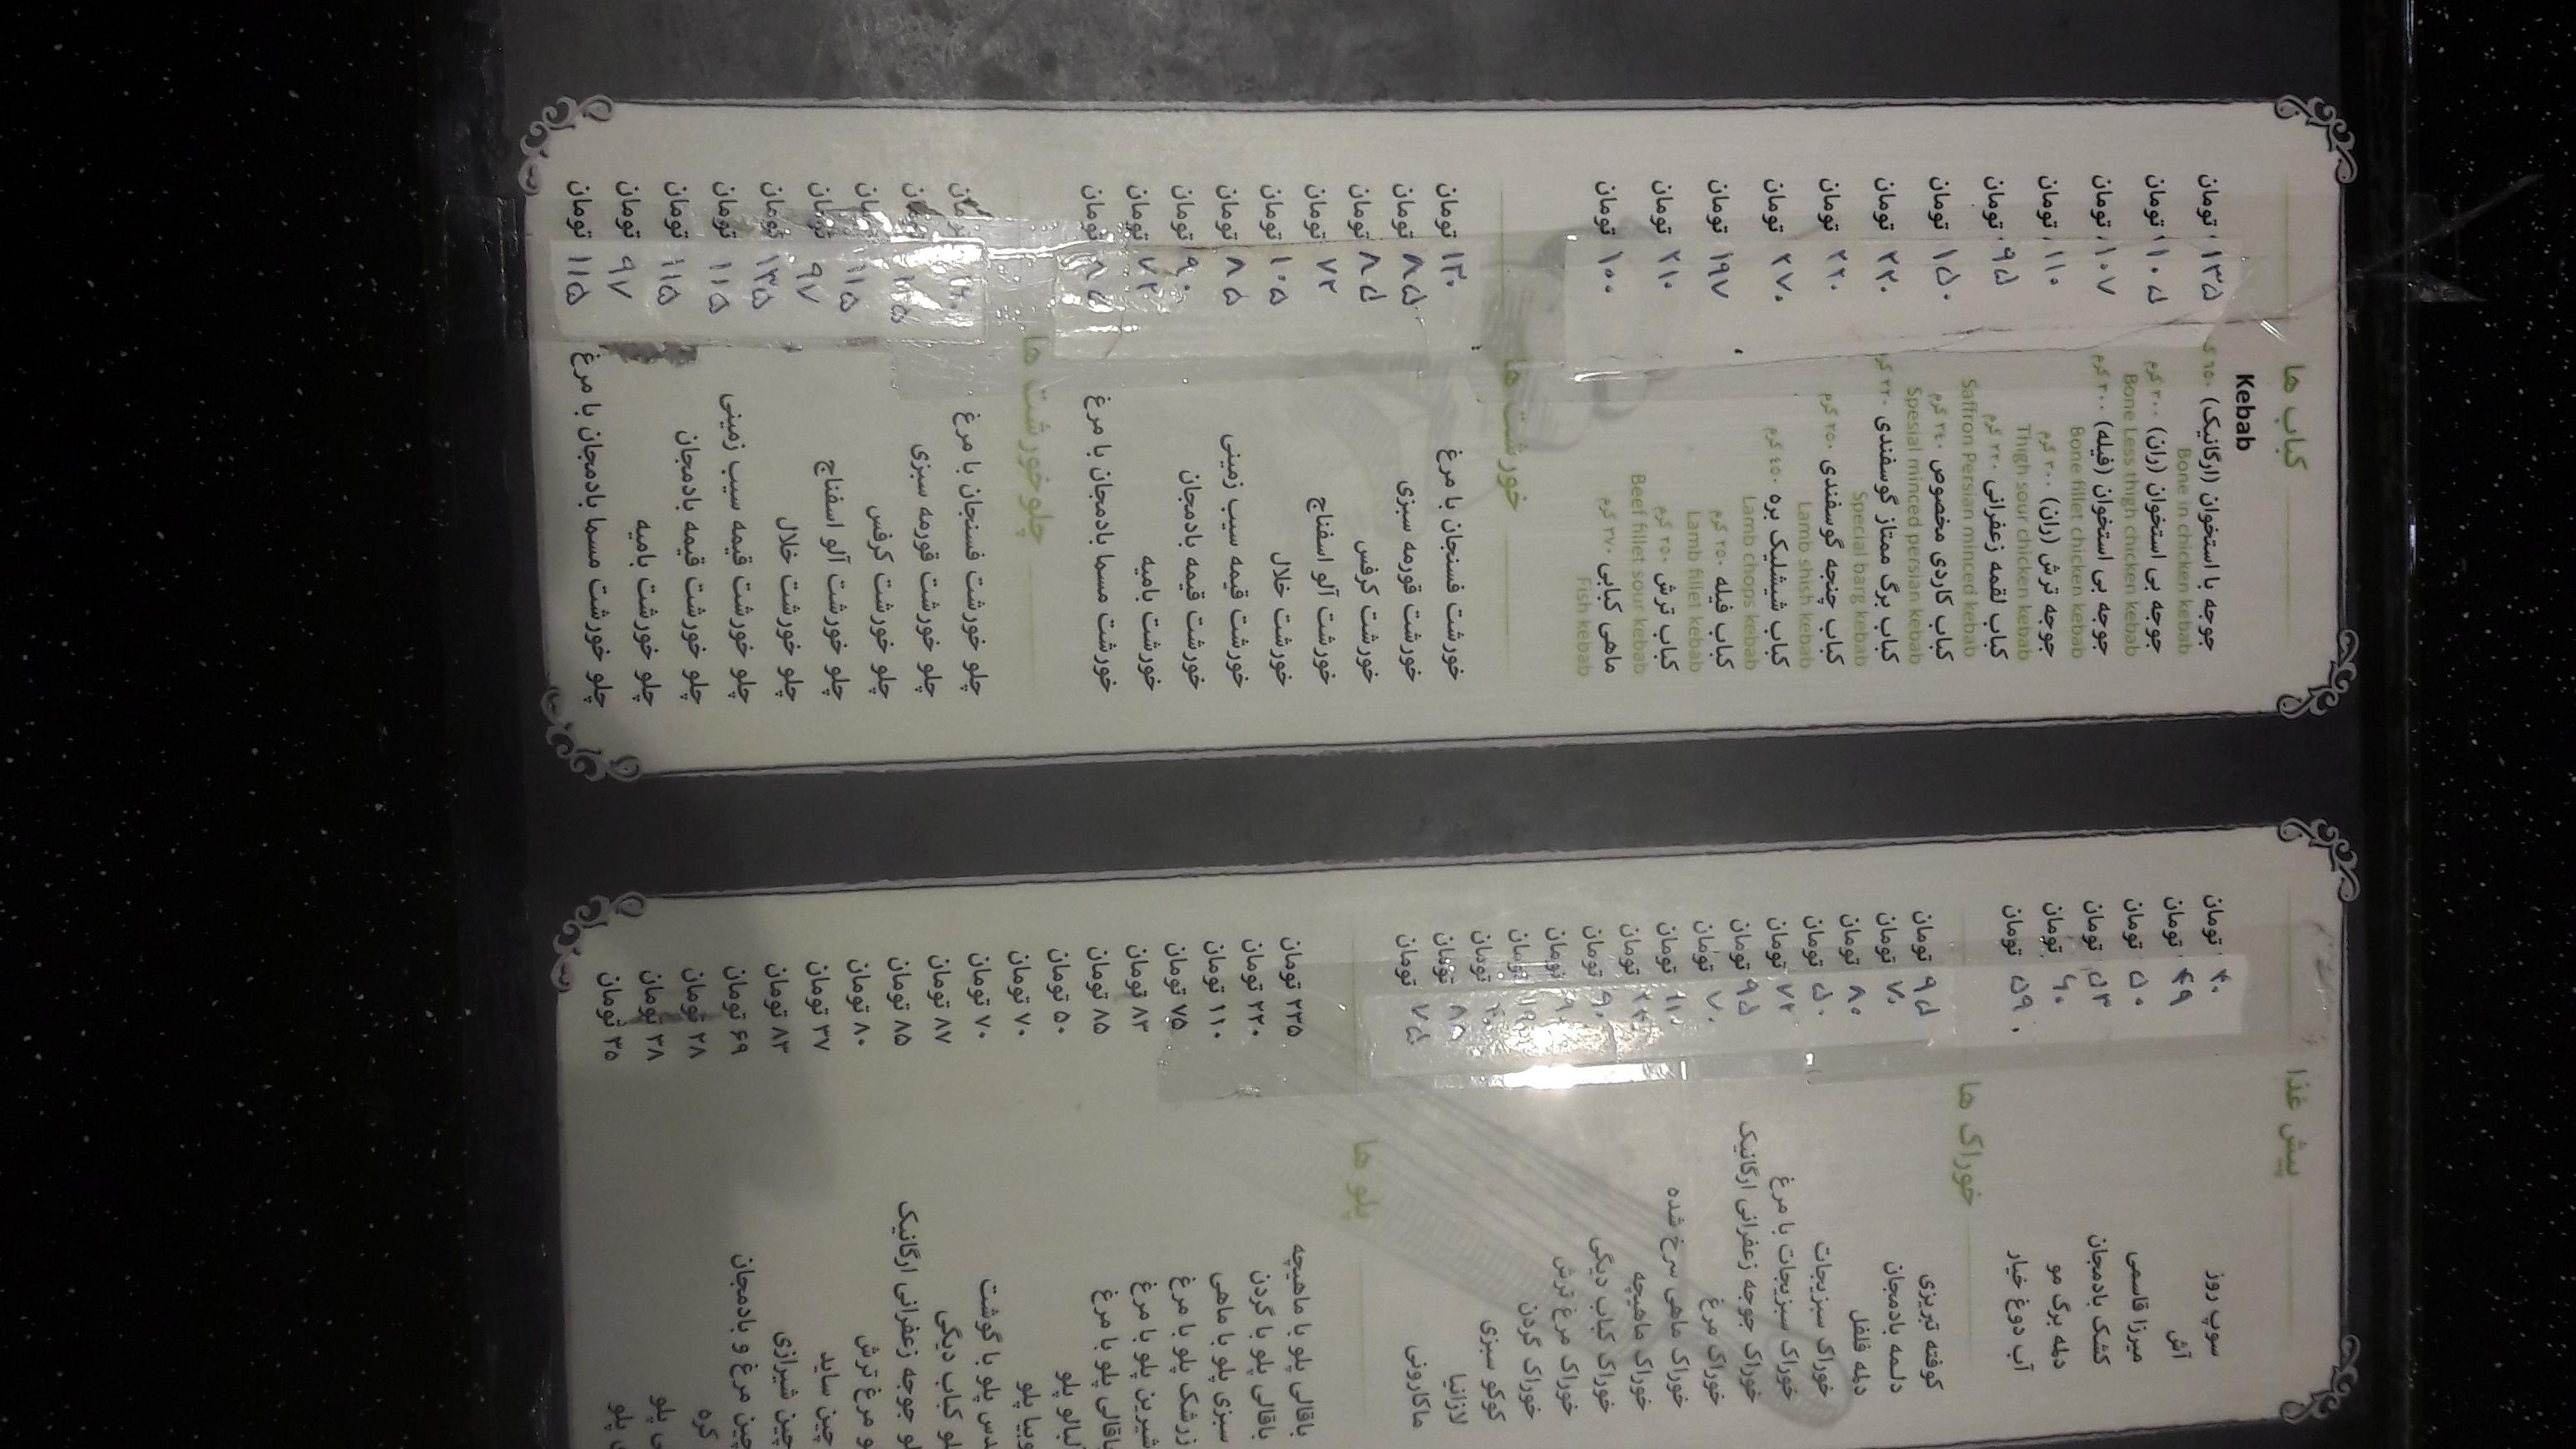 کباب ها
Kebab
جوجه با استخوان (ارگانیک) ۶۵۰ ۱۳۵ تومان
Bone in chicken kebab
جوجه بی استخوان (ران) ۳۰۰ گرم ۱۰۵ تومان
Bone Less thigh chicken kebab
جوجه بی استخوان (فیله) ۳۰۰ گرم ۱۰۷ تومان
Bone fillet chicken kebab
جوجه ترش (ران) ۳۰۰ گرم ۱۱۰ تومان
Thigh sour chicken kebab
کباب لقمه زعفرانی ۲۲۰ گرم ۹۵ تومان
Saffron Persian minced kebab
کباب کاردی مخصوص ۲۴۰ گرم ۱۵۰ تومان
Spesial minced persian kebab
کباب برگ ممتاز گوسفندی ۲۲۰ ۲۲۰ تومان
Special barg kebab
کباب چنجه گوسفندی ۲۵۰ گرم ۲۲۰ تومان
Lamb shish kebab
کباب شیشلیک بره ۴۵۰ گرم ۲۷۰ تومان
Lamb chops kebab
کباب فیله ۲۵۰ گرم ۱۹۷ تومان
Lamb fillet kebab
کباب ترش ۲۵۰ گرم ۲۱۰ تومان
Beef fillet sour kebab
ماهی کبابی ۲۷۰ گرم ۱۰۰ تومان
Fish kebab
خورشت ها
خورشت فسنجان با مرغ ۱۳۰ تومان
خورشت قورمه سبزی ۸۵ تومان
خورشت کرفس ۸۵ تومان
خورشت آلو اسفناج ۷۲ تومان
خورشت خلال ۱۰۵ تومان
خورشت قیمه سیب زمینی ۸۵ تومان
خورشت قیمه بادمجان ۹۰ تومان
خورشت بامیه ۷۲ تومان
خورشت مسما بادمجان با مرغ ۸۵ تومان
چلوخورشت ها
چلو خورشت فسنجان با مرغ
چلو خورشت قورمه سبزی
چلو خورشت کرفس ۱۱۵ تومان
چلو خورشت آلو اسفناج ۹۷ تومان
چلو خورشت خلال ۱۳۵ تومان
چلو خورشت قیمه سیب زمینی ۱۱۵ تومان
چلو خورشت قیمه بادمجان ۱۱۵ تومان
چلو خورشت بامیه ۹۷ تومان
چلو خورشت مسما بادمجان با مرغ ۱۱۵ تومان
پیش غذا
سوپ روز ۴۰ تومان
آش ۴۹ تومان
میرزا قاسمی ۵۰ تومان
کشک بادمجان ۵۳ تومان
دلمه برگ مو ۶۰ تومان
آب دوغ خیار ۵۹ تومان
خوراک ها
کوفته تبریزی ۹۵ تومان
دلمه بادمجان ۷۰ تومان
دلمه فلفل ۸۰ تومان
خوراک سبزیجات ۵۰ تومان
خوراک سبزیجات با مرغ ۷۲ تومان
خوراک جوجه زعفرانی ارگانیک ۹۵ تومان
خوراک مرغ ۷۰ تومان
خوراک ماهی سرخ شده ۱۱۰ تومان
خوراک ماهیچه تومان
خوراک کباب دیگی ۹۰ تومان
خوراک مرغ ترش تومان
خوراک گردن تومان
کوکو سبزی تومان
لازانیا تومان
ماکارونی ۷۵ تومان
پلو ها
باقالی پلو با ماهیچه ۲۳۵ تومان
باقالی پلو با گردن ۲۲۰ تومان
سبزی پلو با ماهی ۱۱۰ تومان
زرشک پلو با مرغ ۷۵ تومان
شیرین پلو با مرغ ۸۳ تومان
باقالی پلو با مرغ ۸۵ تومان
آلبالو پلو ۵۰ تومان
لوبیا پلو ۷۰ تومان
عدس پلو با گوشت ۷۰ تومان
کباب دیگی ۸۷ تومان
جوجه زعفرانی ارگانیک ۸۵ تومان
مرغ ترش ۸۰ تومان
چین ساید ۳۷ تومان
چین شیرازی ۸۳ تومان
چین مرغ و بادمجان ۶۹ تومان
کره ۲۸ تومان
پلو ۳۸ تومان
پلو ۳۵ تومان